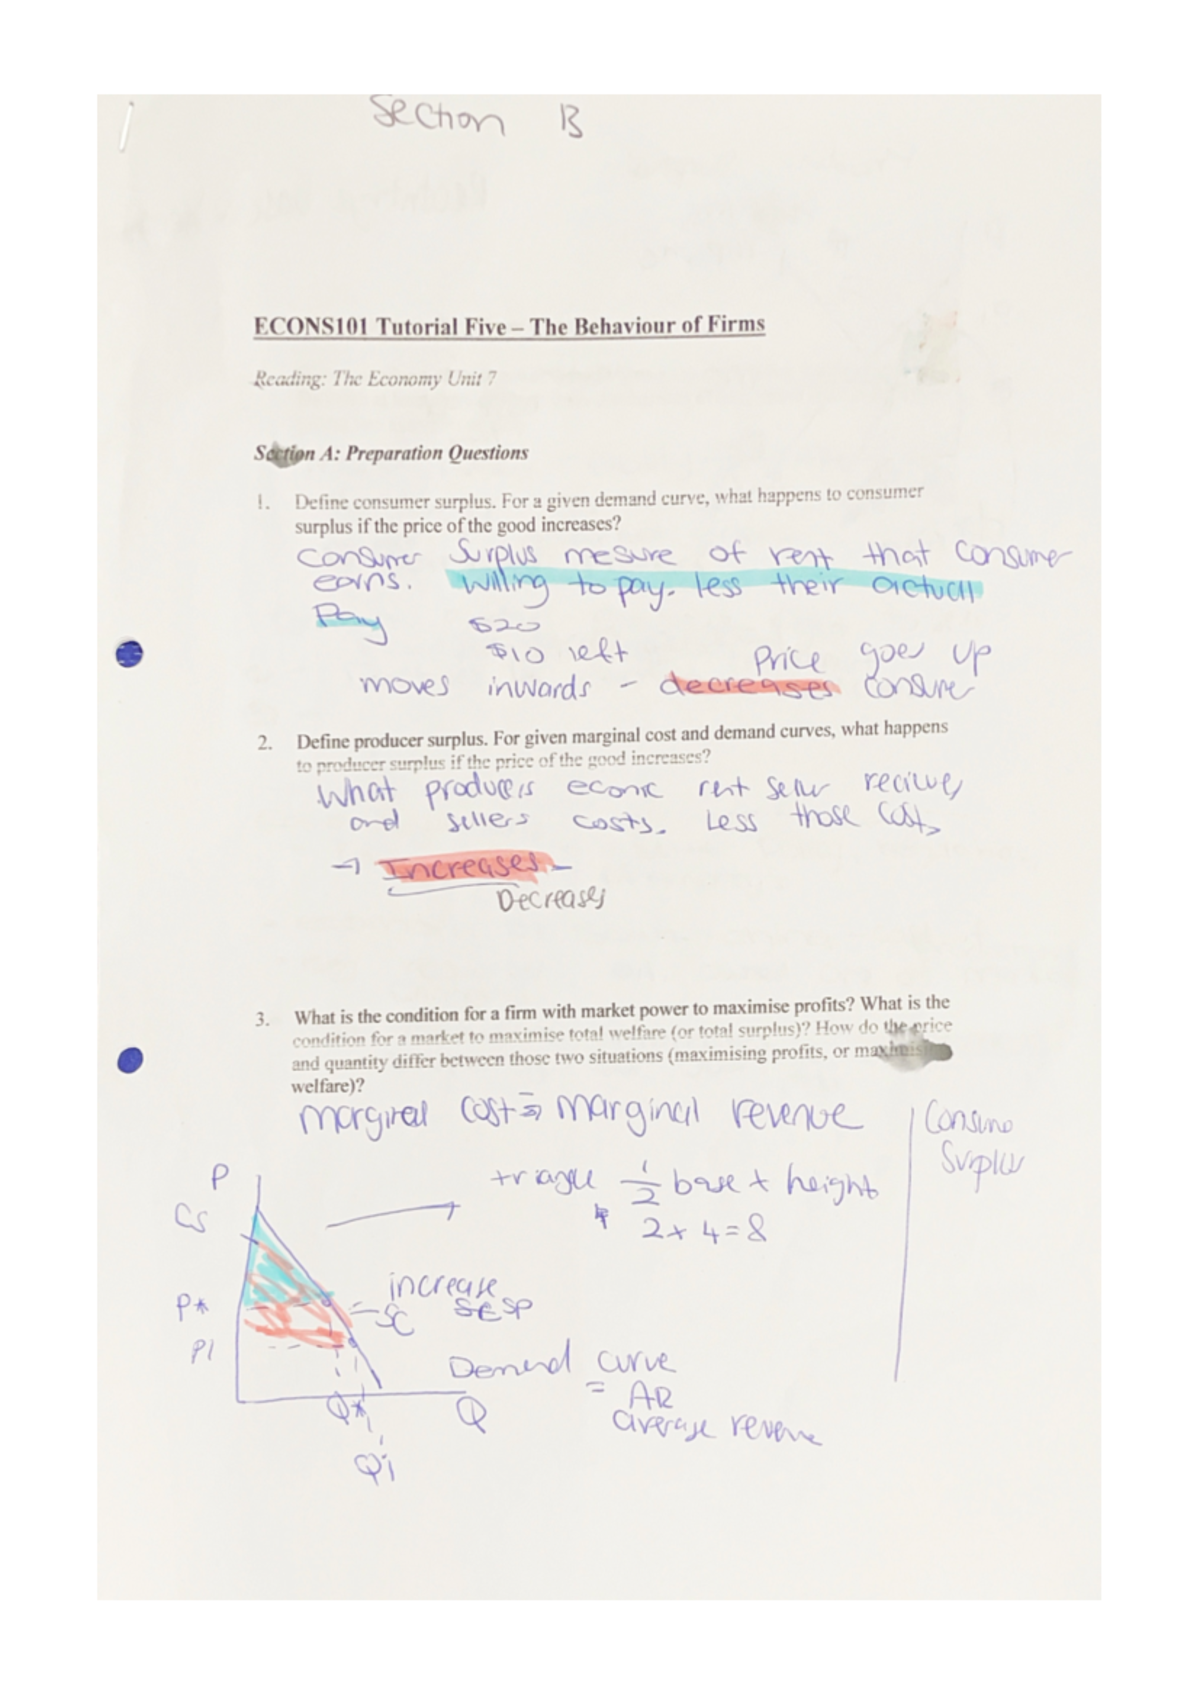 Section B
ECONS101 Tutorial Five – The Behaviour of Firms
Reading: The Economy Unit 7
Section A: Preparation Questions
1. Define consumer surplus. For a given demand curve, what happens to consumer
surplus if the price of the good increases?
Consumer Surplus mesure of rent that consumer
earns. Willing to pay. less their actuall
Pay $20
$10 left Price goes up
moves inwards - decreases consure
2. Define producer surplus. For given marginal cost and demand curves, what happens
to producer surplus if the price of the good increases?
What producers econic rent seller recives
and sellers costs. Less those costs
→ Increases
Decreases
3. What is the condition for a firm with market power to maximise profits? What is the
condition for a market to maximise total welfare (or total surplus)? How do the price
and quantity differ between those two situations (maximising profits, or maximising
welfare)?
marginal cost = marginal revenue
Consumo
Surplus
P
triangle 1/2 base + height
CS
2 x 4 = 8
increase
P*
SC
P1
Demend curve
= AR
average revenue
Q*
Q
Q1